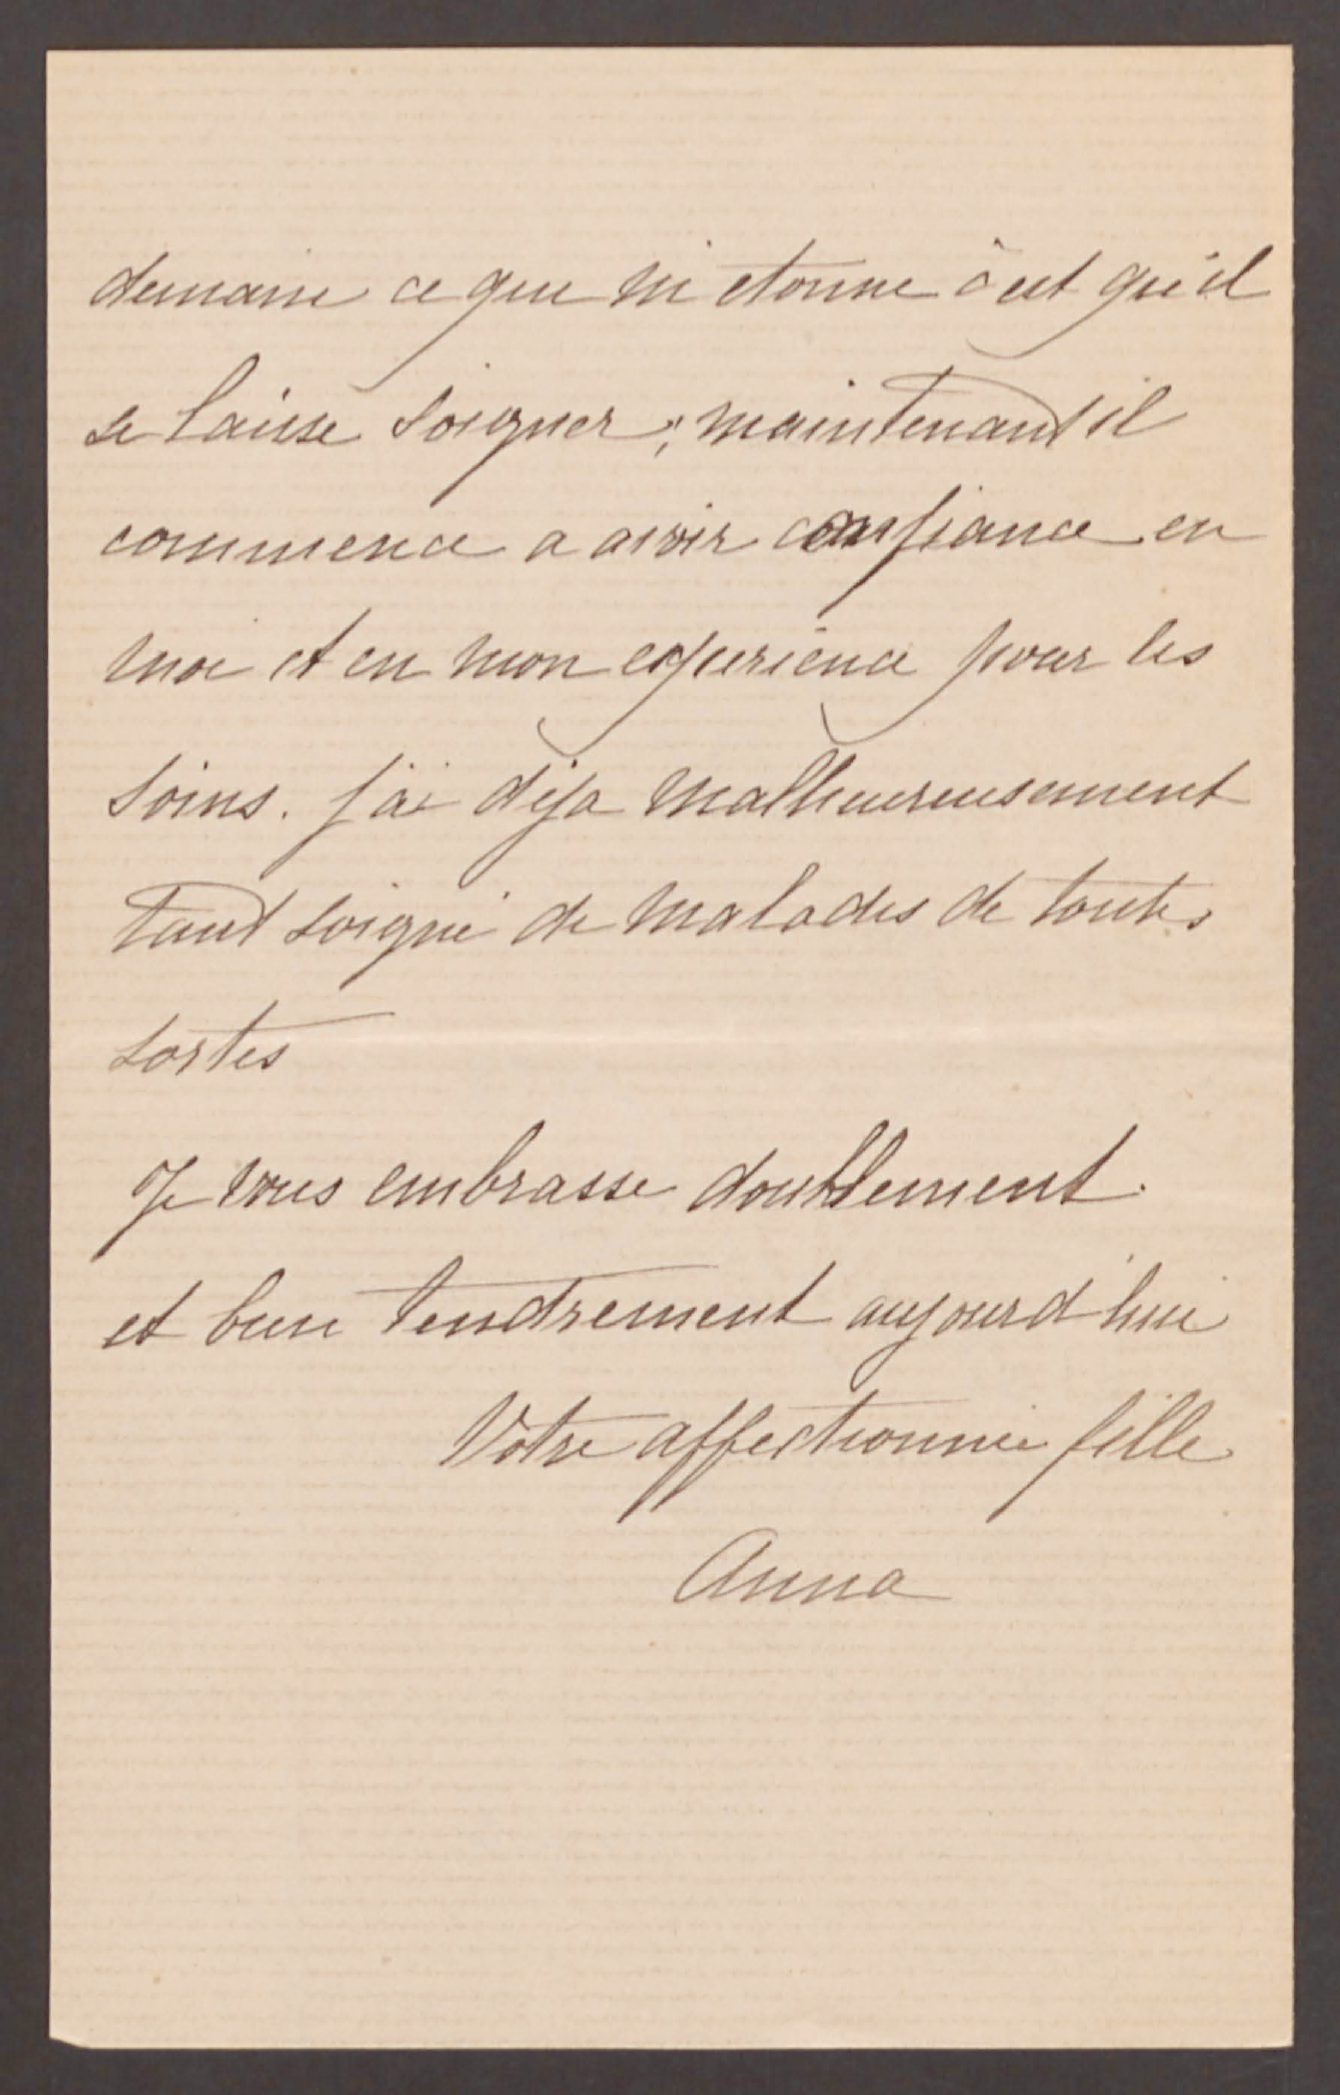 demain ce que m'etonne c'est qu'il
se laisse soigner; maintenant il
commence a avoir confiance en
moi et en mon experience pour les
soins. J'ai déja malheureusement
tant soigné de malades de toutes
sortes
Je vous embrasse doublement
et bien tendrement aujourd'hui
Votre affectionnée fille
Anna